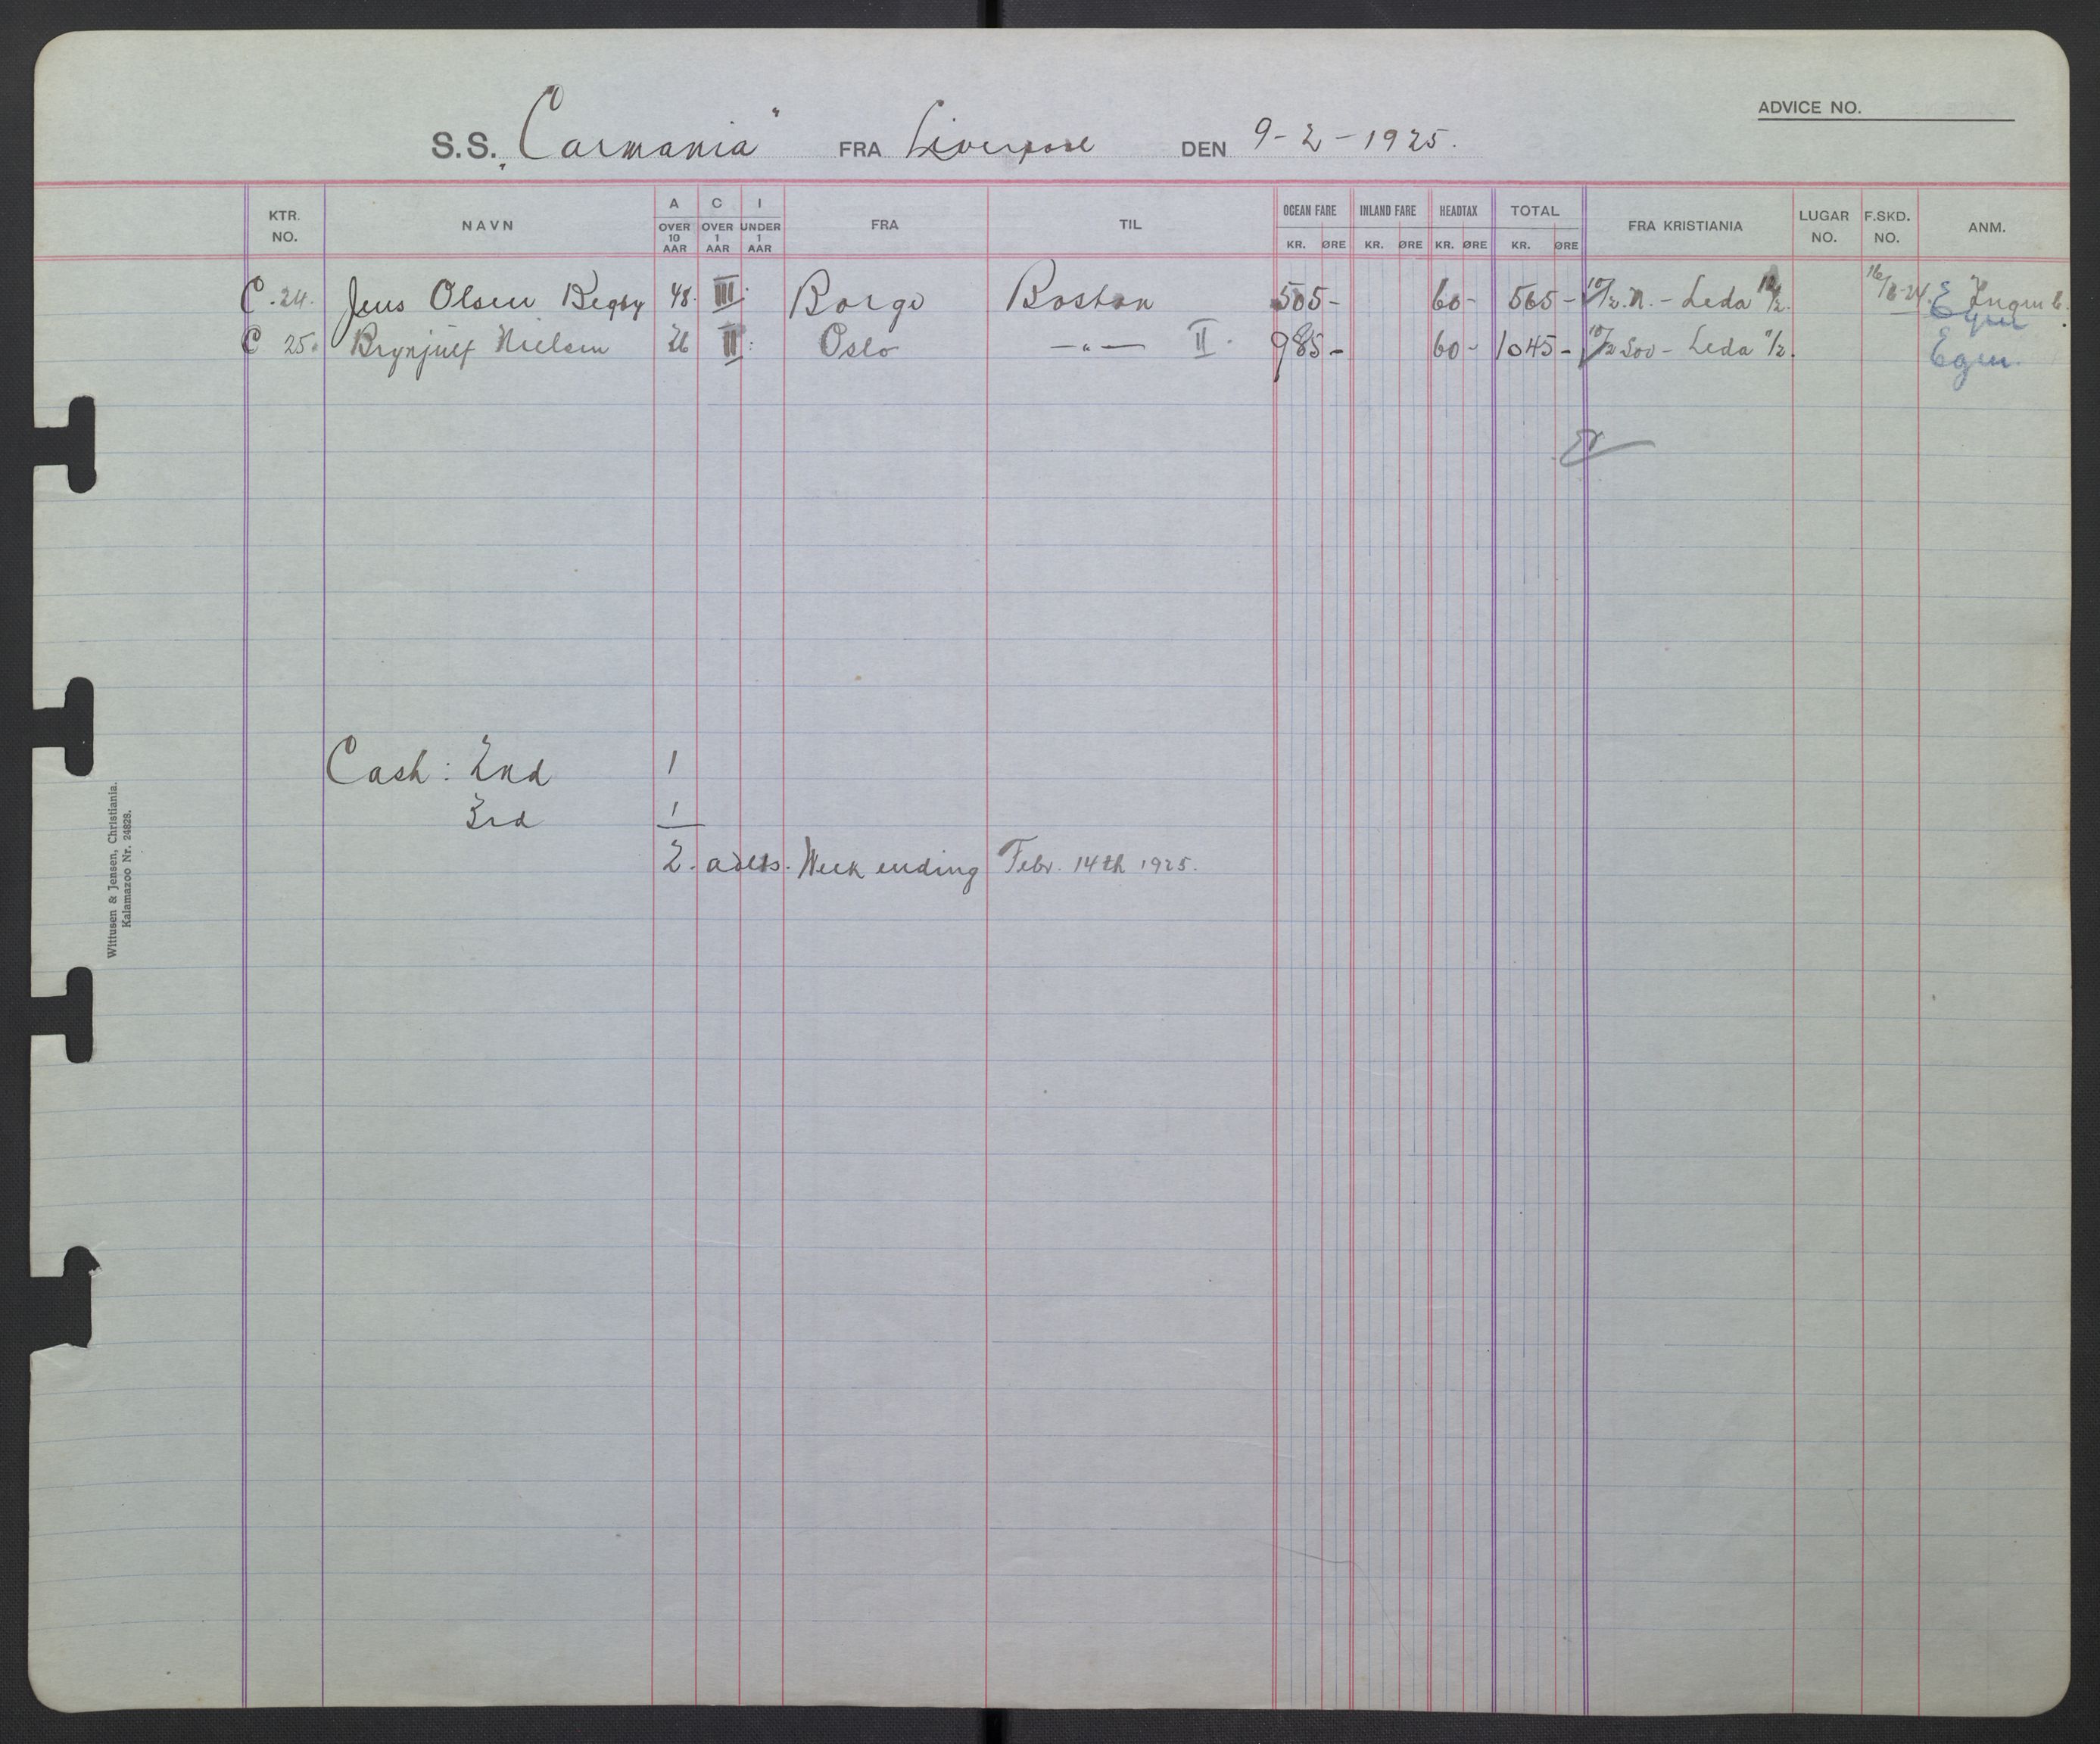 ADVICE NO.
S.S. „Carmania" FRA Liverpool DEN 9-2-1925.
KTR. NO. NAVN A OVER 10 AAR C OVER 1 AAR I UNDER 1 AAR FRA TIL OCEAN FARE KR. ØRE INLAND FARE KR. ØRE HEADTAX KR. ØRE TOTAL KR. ØRE FRA KRISTIANIA LUGAR NO. F.SKD. NO. ANM.
C. 24. Jens Olsen Begby 48. III. Borge Boston 505- 60- 565- 10/2. N. - Leda 12/2. Egen
C 25. Brynjulf Nielsen 26 II. Oslo -"- II. 985- 60- 1045- 10/2 Sov - Leda Egen.
Cash: 2nd 1
3rd 1
2. adlts. Week ending Febr. 14th 1925.
Wittusen & Jensen, Christiania.
Kalamazoo Nr. 24828.